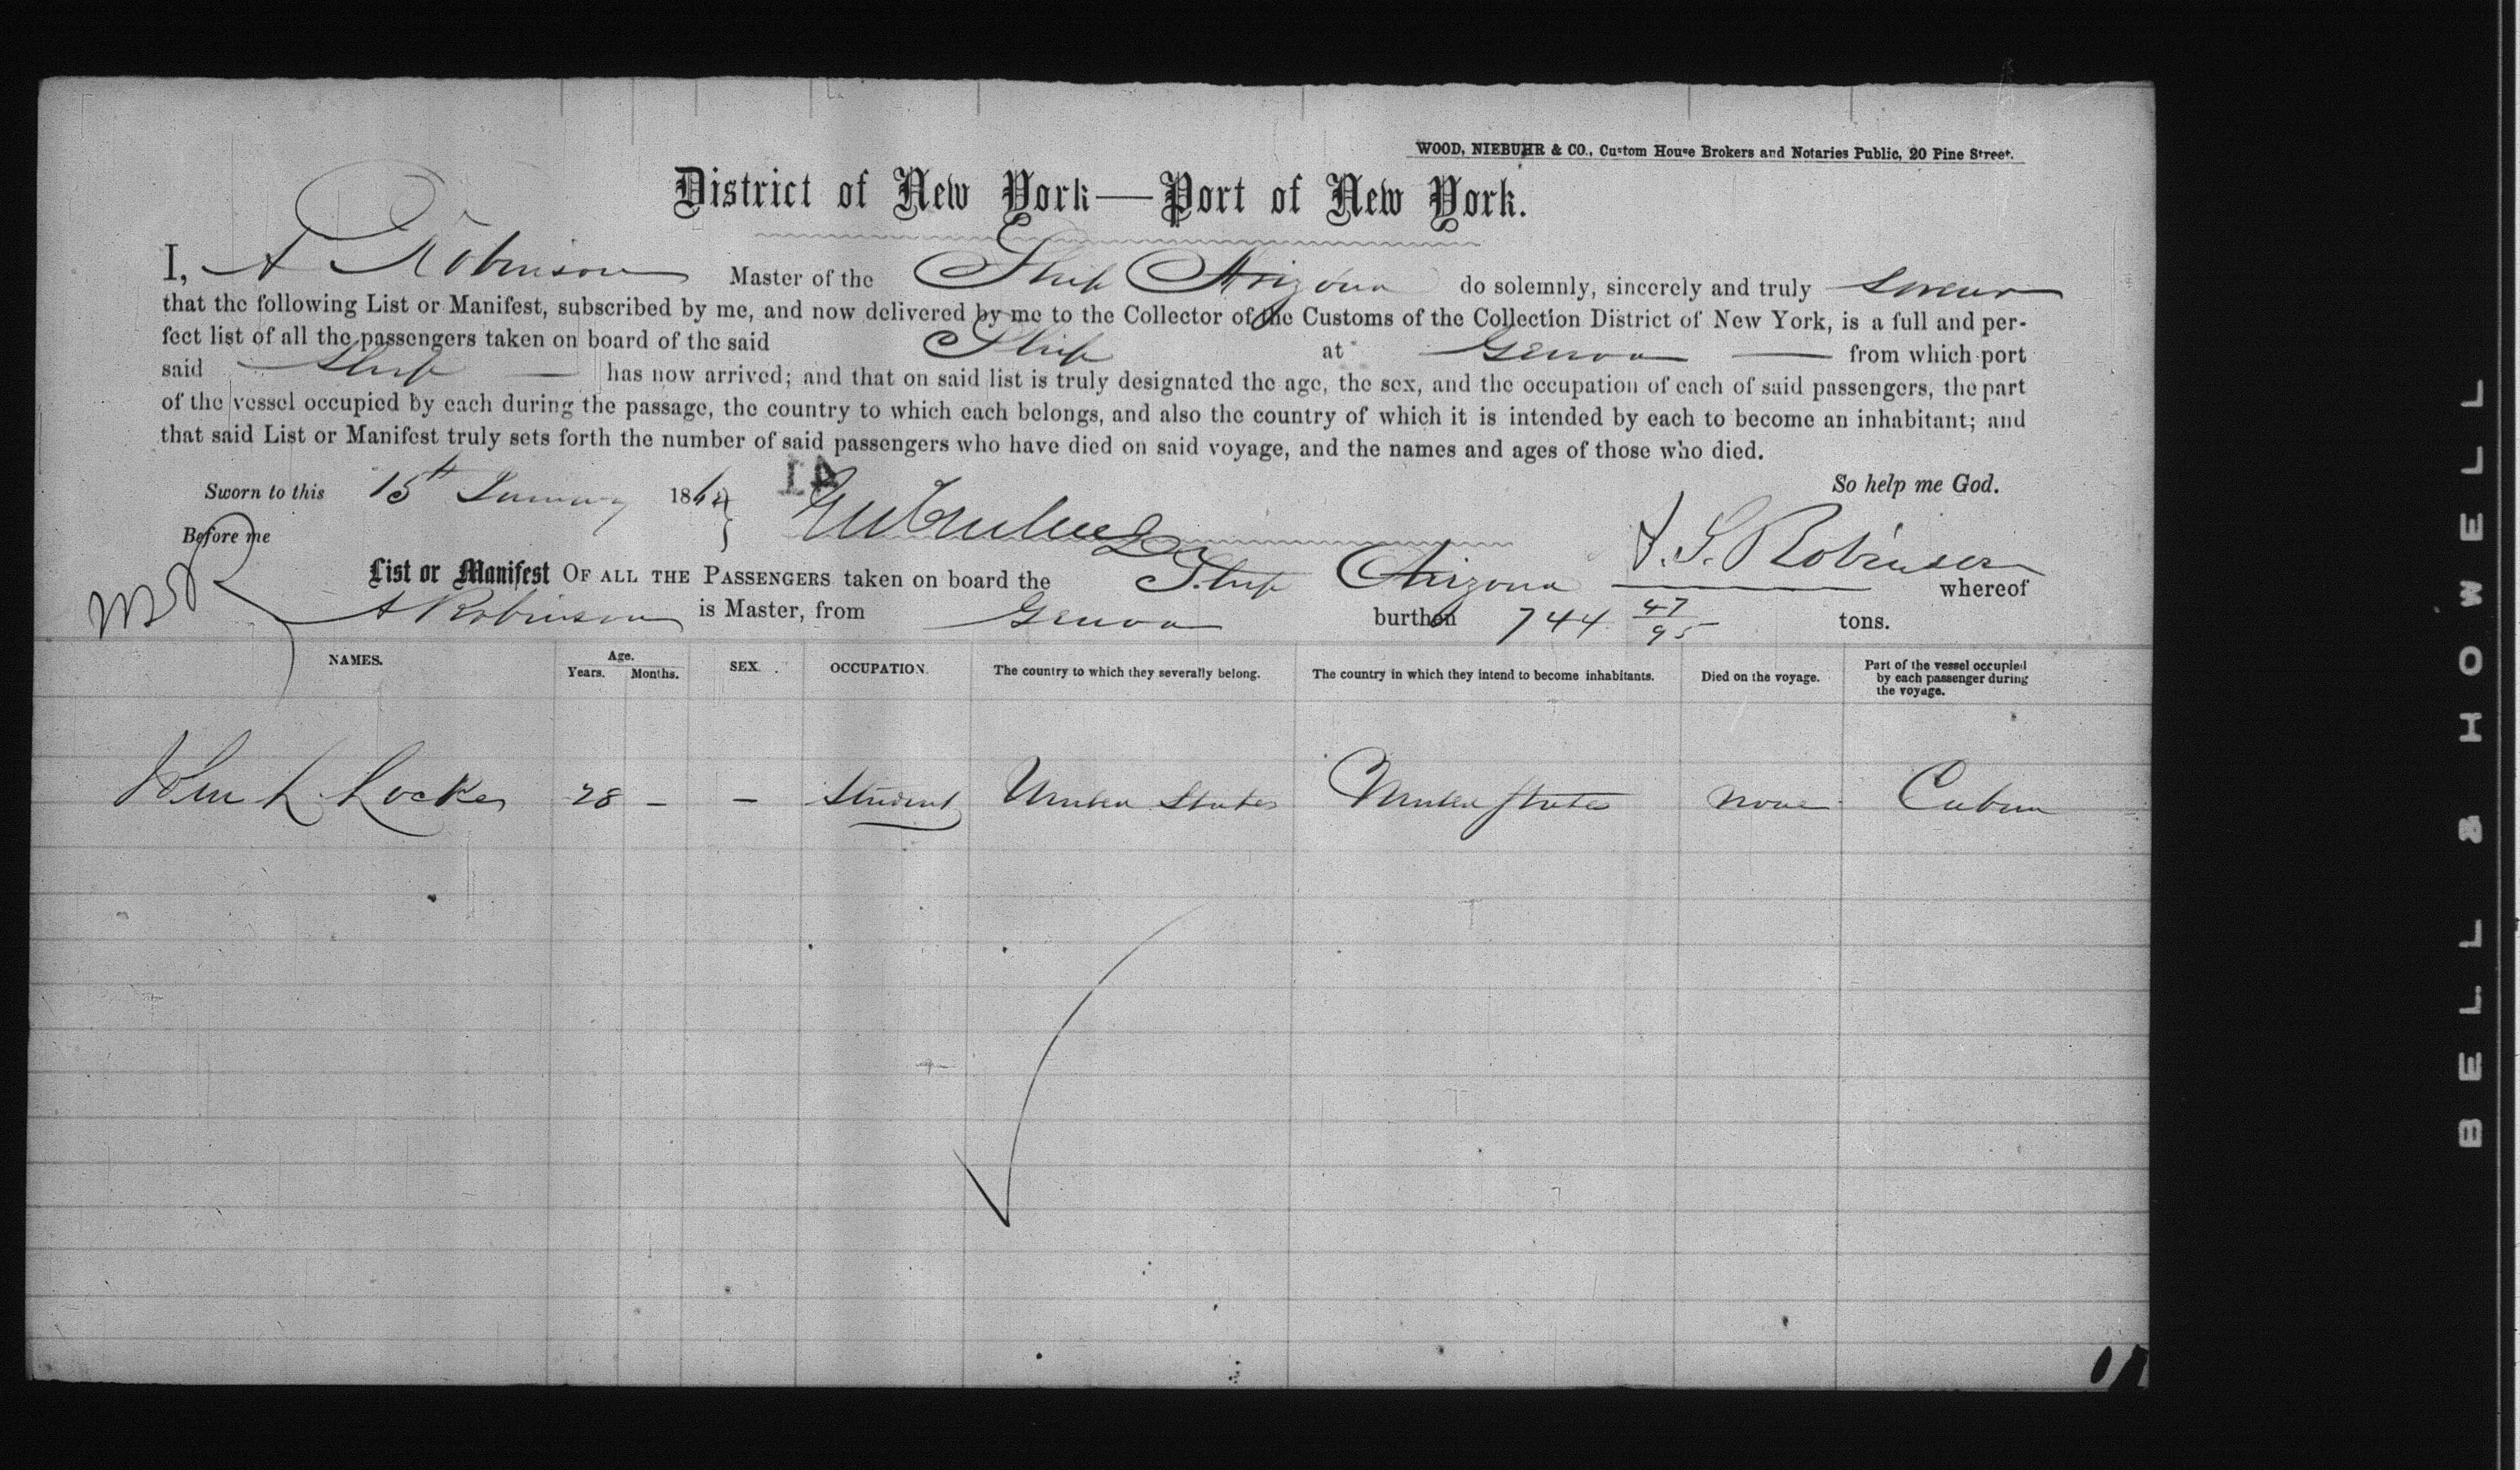 WOOD, NIEBUHR & CO., Custom House Brokers and Notaries Public, 20 Pine Street.
District of New York—Port of New York.
I, A Robinson Master of the Ship Arizona do solemnly, sincerely and truly swear
that the following List or Manifest, subscribed by me, and now delivered by me to the Collector of the Customs of the Collection District of New York, is a full and per-
fect list of all the passengers taken on board of the said Ship at Genoa from which port
said Ship has now arrived; and that on said list is truly designated the age, the sex, and the occupation of each of said passengers, the part
of the vessel occupied by each during the passage, the country to which each belongs, and also the country of which it is intended by each to become an inhabitant; and
that said List or Manifest truly sets forth the number of said passengers who have died on said voyage, and the names and ages of those who died.
Sworn to this 15th January 186 So help me God.
Before me
List or Manifest OF ALL THE PASSENGERS taken on board the Ship Arizona whereof
A Robinson is Master, from Genoa burthen 744 47/95 tons.
NAMES. Age. Years. Months. SEX. OCCUPATION. The country to which they severally belong. The country in which they intend to become inhabitants. Died on the voyage. Part of the vessel occupied by each passenger during the voyage.
John L. 28 – – Student United States United States none Cabin
BELL & HOWELL